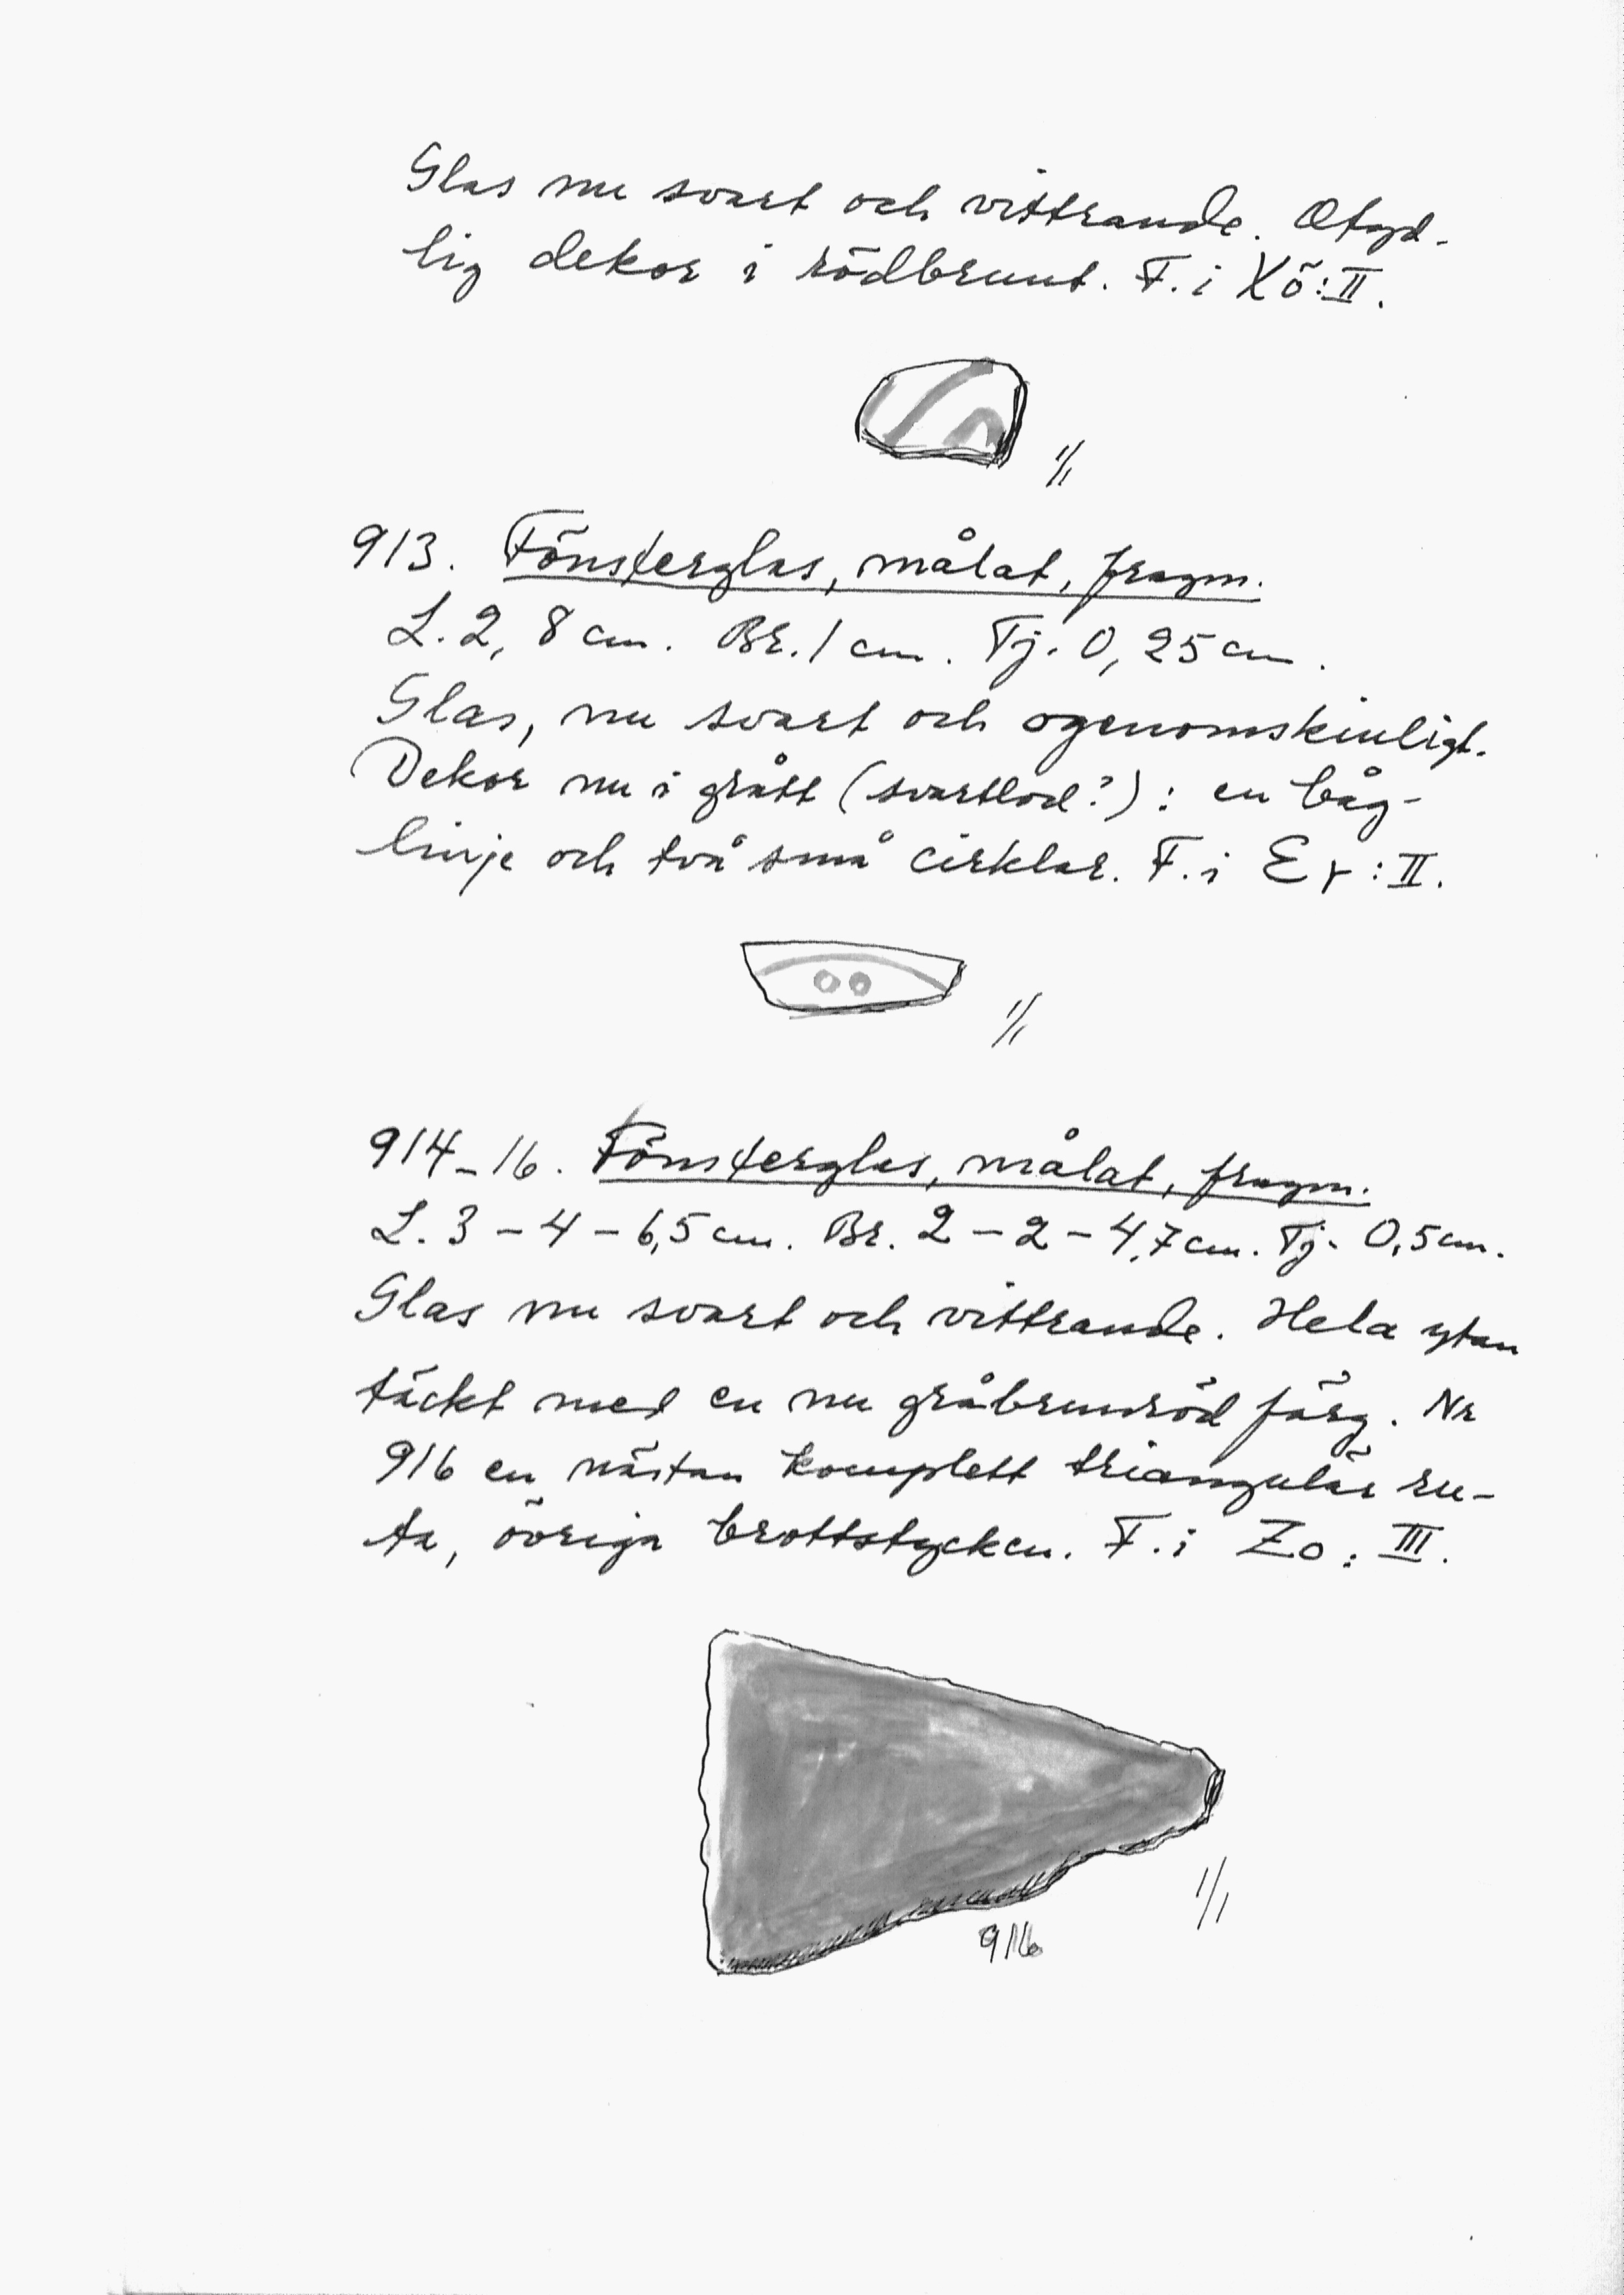 Glas nu svart och vittrande. Otyd-
lig dekor i rödbrunt. F. i Xö:II.
1/1
913. Fönsterglas, målat, fragm.
L. 2,8 cm. Br. 1 cm. Tj. 0,25 cm.
Glas, nu svart och ogenomskinligt.
Dekor nu i grått (svartlod?): en båg-
linje och två små cirklar. F. i Er:II.
1/1
914-16. Fönsterglas, målat, fragm.
L. 3-4-6,5 cm. Br. 2-2-4,7 cm. Tj. 0,5 cm.
Glas nu svart och vittrande. Hela ytan
täckt med en nu gråbrunröd färg. Nr
916 en nästan komplett triangulär ru-
ta, övriga brottstycken. F. i Zo: III.
1/1
916